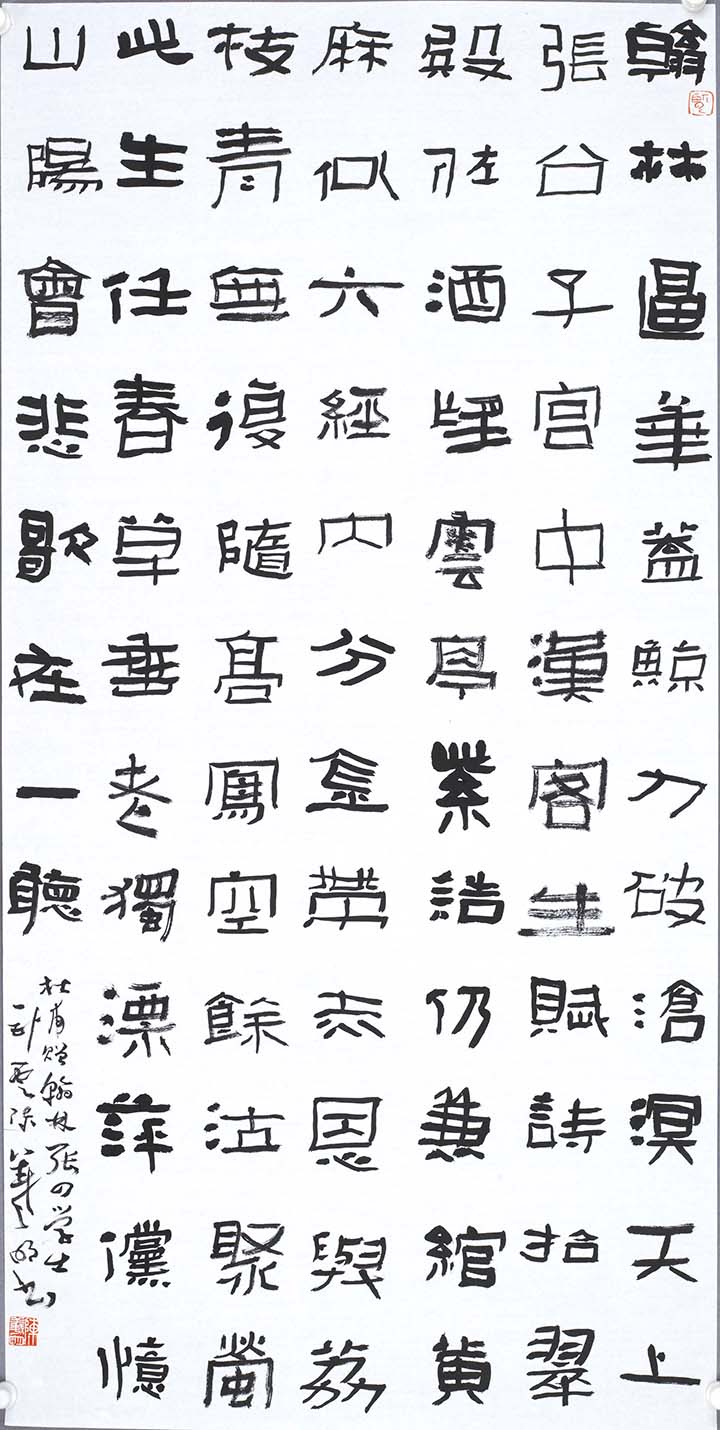 翰林逼華蓋鯨力破滄溟天上
張公子宮中漢客生賦詩拾翠
殿佐酒望雲亭紫誥仍兼綰黃
麻似六經內分金帶赤恩與荔
枝青無復隨高鳳空餘沽聚螢
此生任春草垂老獨漂萍儻憶
山陽會悲歌在一聽
杜甫贈翰林張四学士